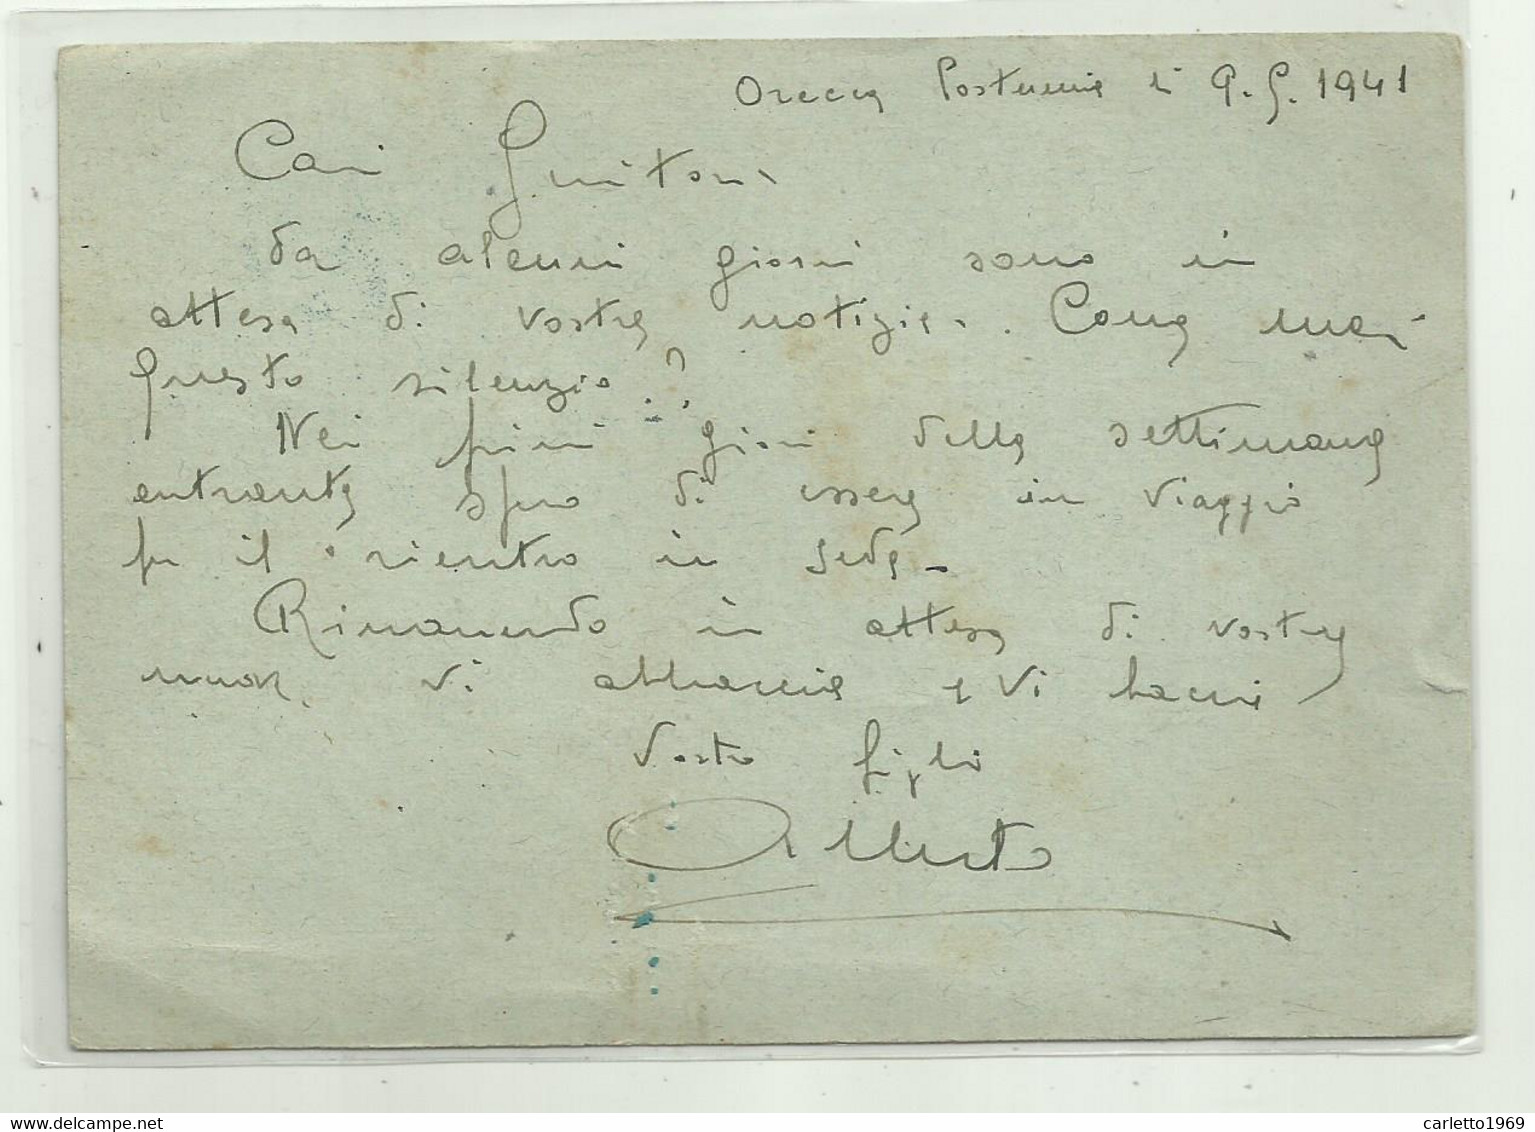 Orecca Postumia li 9.9.1941
Cari Genitori
da alcuni giorni sono in
attesa di vostre notizie. Come mai
questo silenzio?
Nei primi giorni della settimana
entrante spero di essere in viaggio
per il rientro in sede -
Rimanendo in attesa di vostre
nuove vi abbraccia e vi bacia
Vostro figlio
Alberto
www.delcampe.net
carletto1969